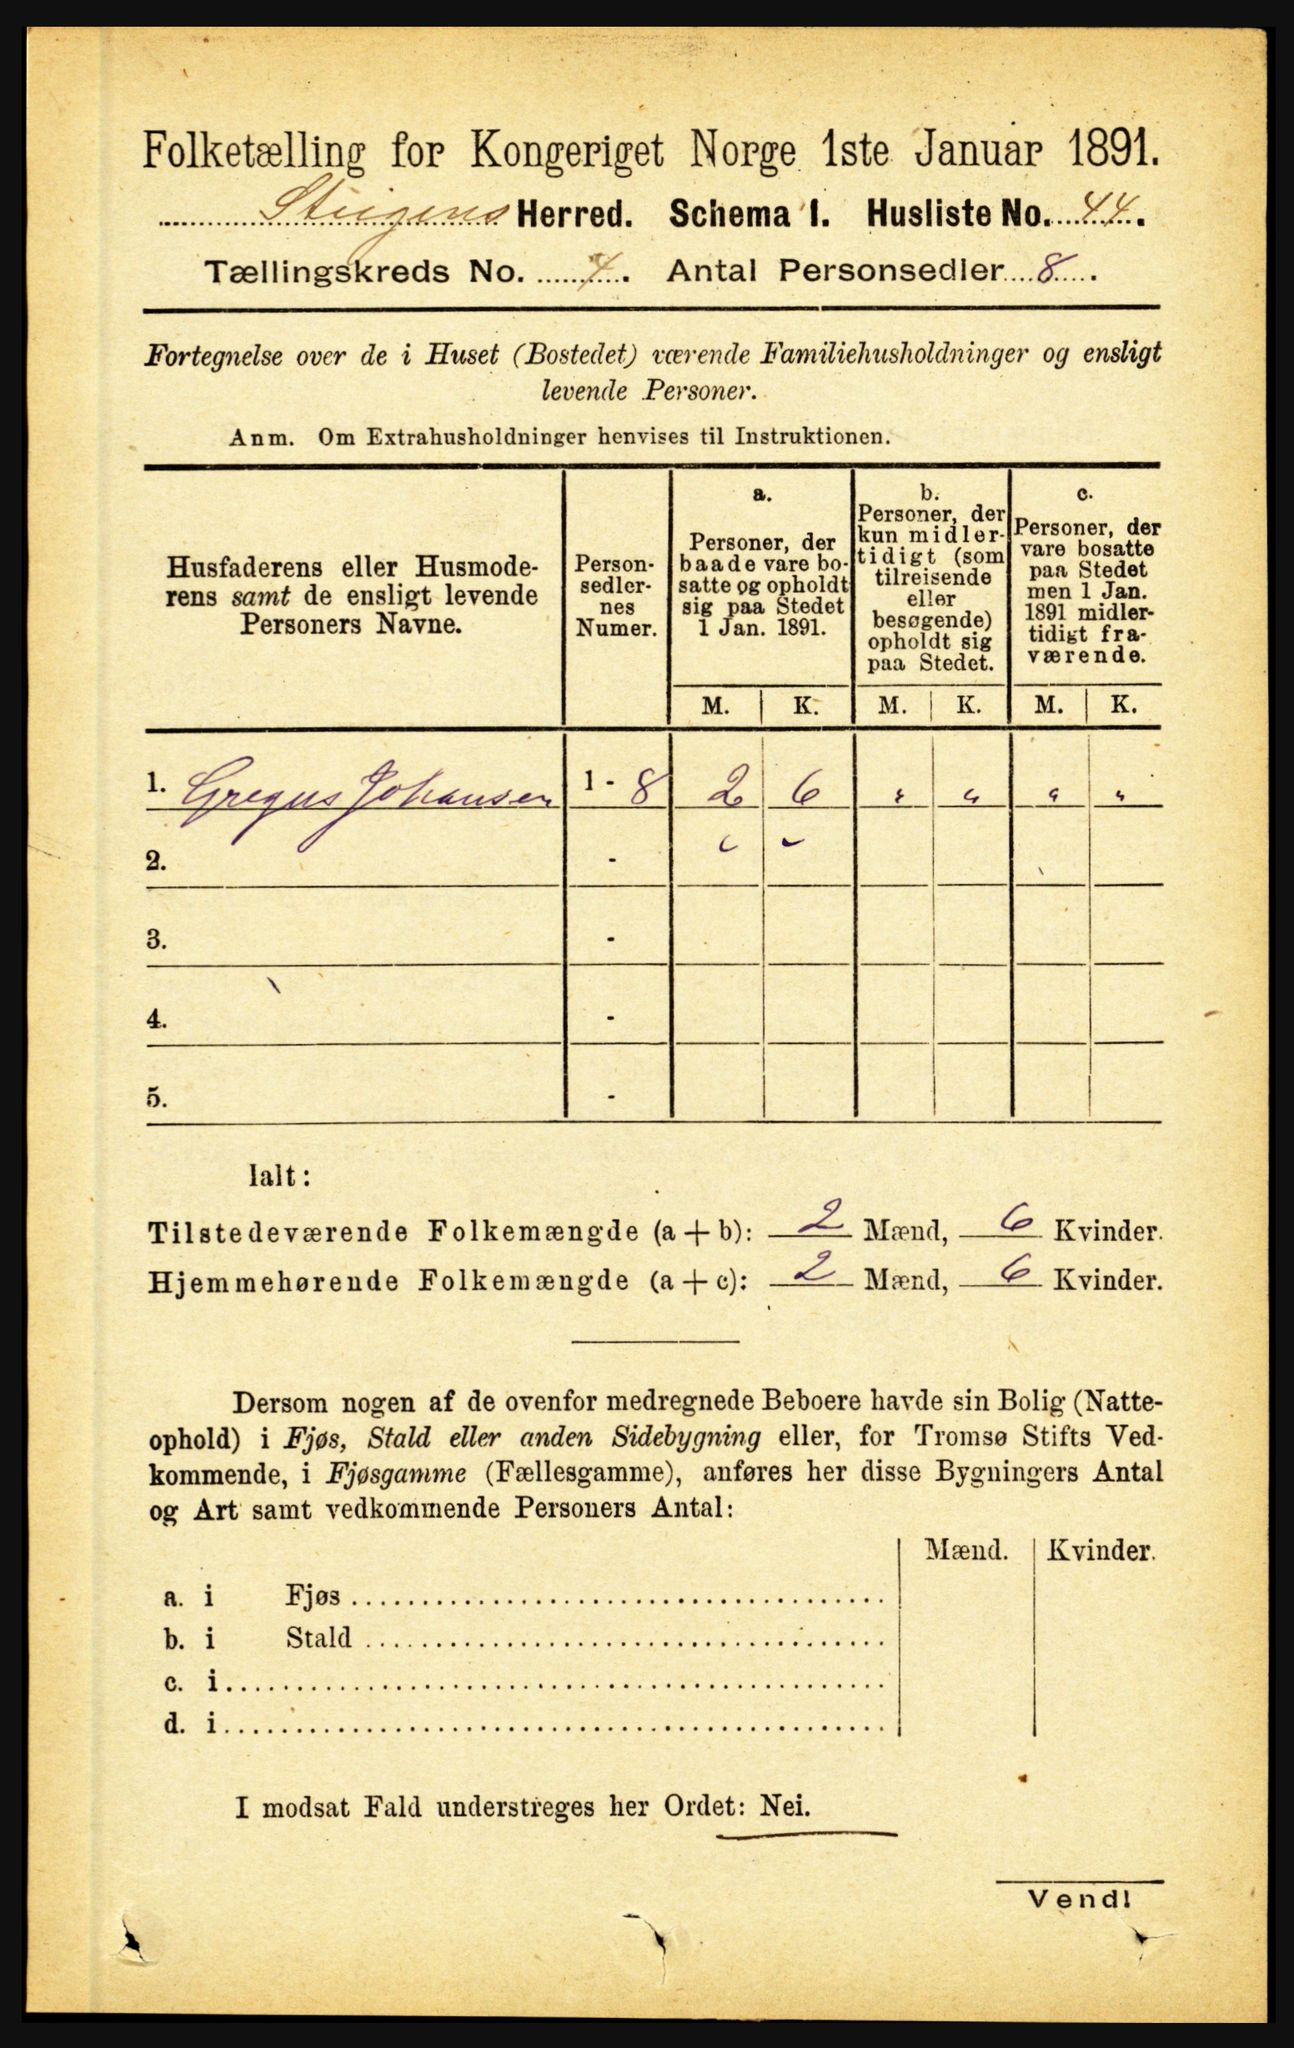 Folketælling for Kongeriget Norge 1ste Januar 1891.
Steigens Herred. Schema 1. Husliste No. 44.
Tællingskreds No. 4. Antal Personsedler 8.
Fortegnelse over de i Huset (Bostedet) værende Familiehusholdninger og ensligt
levende Personer.
Anm. Om Extrahusholdninger henvises til Instruktionen.
Husfaderens eller Husmode-
rens samt de ensligt levende
Personers Navne.
Person-
sedler-
nes
Numer.
a.
Personer, der
baade vare bo-
satte og opholdt
sig paa Stedet
1 Jan. 1891.
b.
Personer, der
kun midler-
tidigt (som
tilreisende
eller
besøgende)
opholdt sig
paa Stedet.
c.
Personer, der
vare bosatte
paa Stedet
men 1 Jan.
1891 midler-
tidigt fra-
værende.
M. K. M. K. M. K.
1. Gregus Johansen 1 - 8 2 6 " " " "
2. -
3. -
4. -
5. -
Ialt:
Tilstedeværende Folkemængde (a + b): 2 Mænd, 6 Kvinder.
Hjemmehørende Folkemængde (a + c): 2 Mænd, 6 Kvinder.
Dersom nogen af de ovenfor medregnede Beboere havde sin Bolig (Natte-
ophold) i Fjøs, Stald eller anden Sidebygning eller, for Tromsø Stifts Ved-
kommende, i Fjøsgamme (Fællesgamme), anføres her disse Bygningers Antal
og Art samt vedkommende Personers Antal:
Mænd. Kvinder.
a. i Fjøs
b. i Stald
c. i
d. i
I modsat Fald understreges her Ordet: Nei.
Vend!